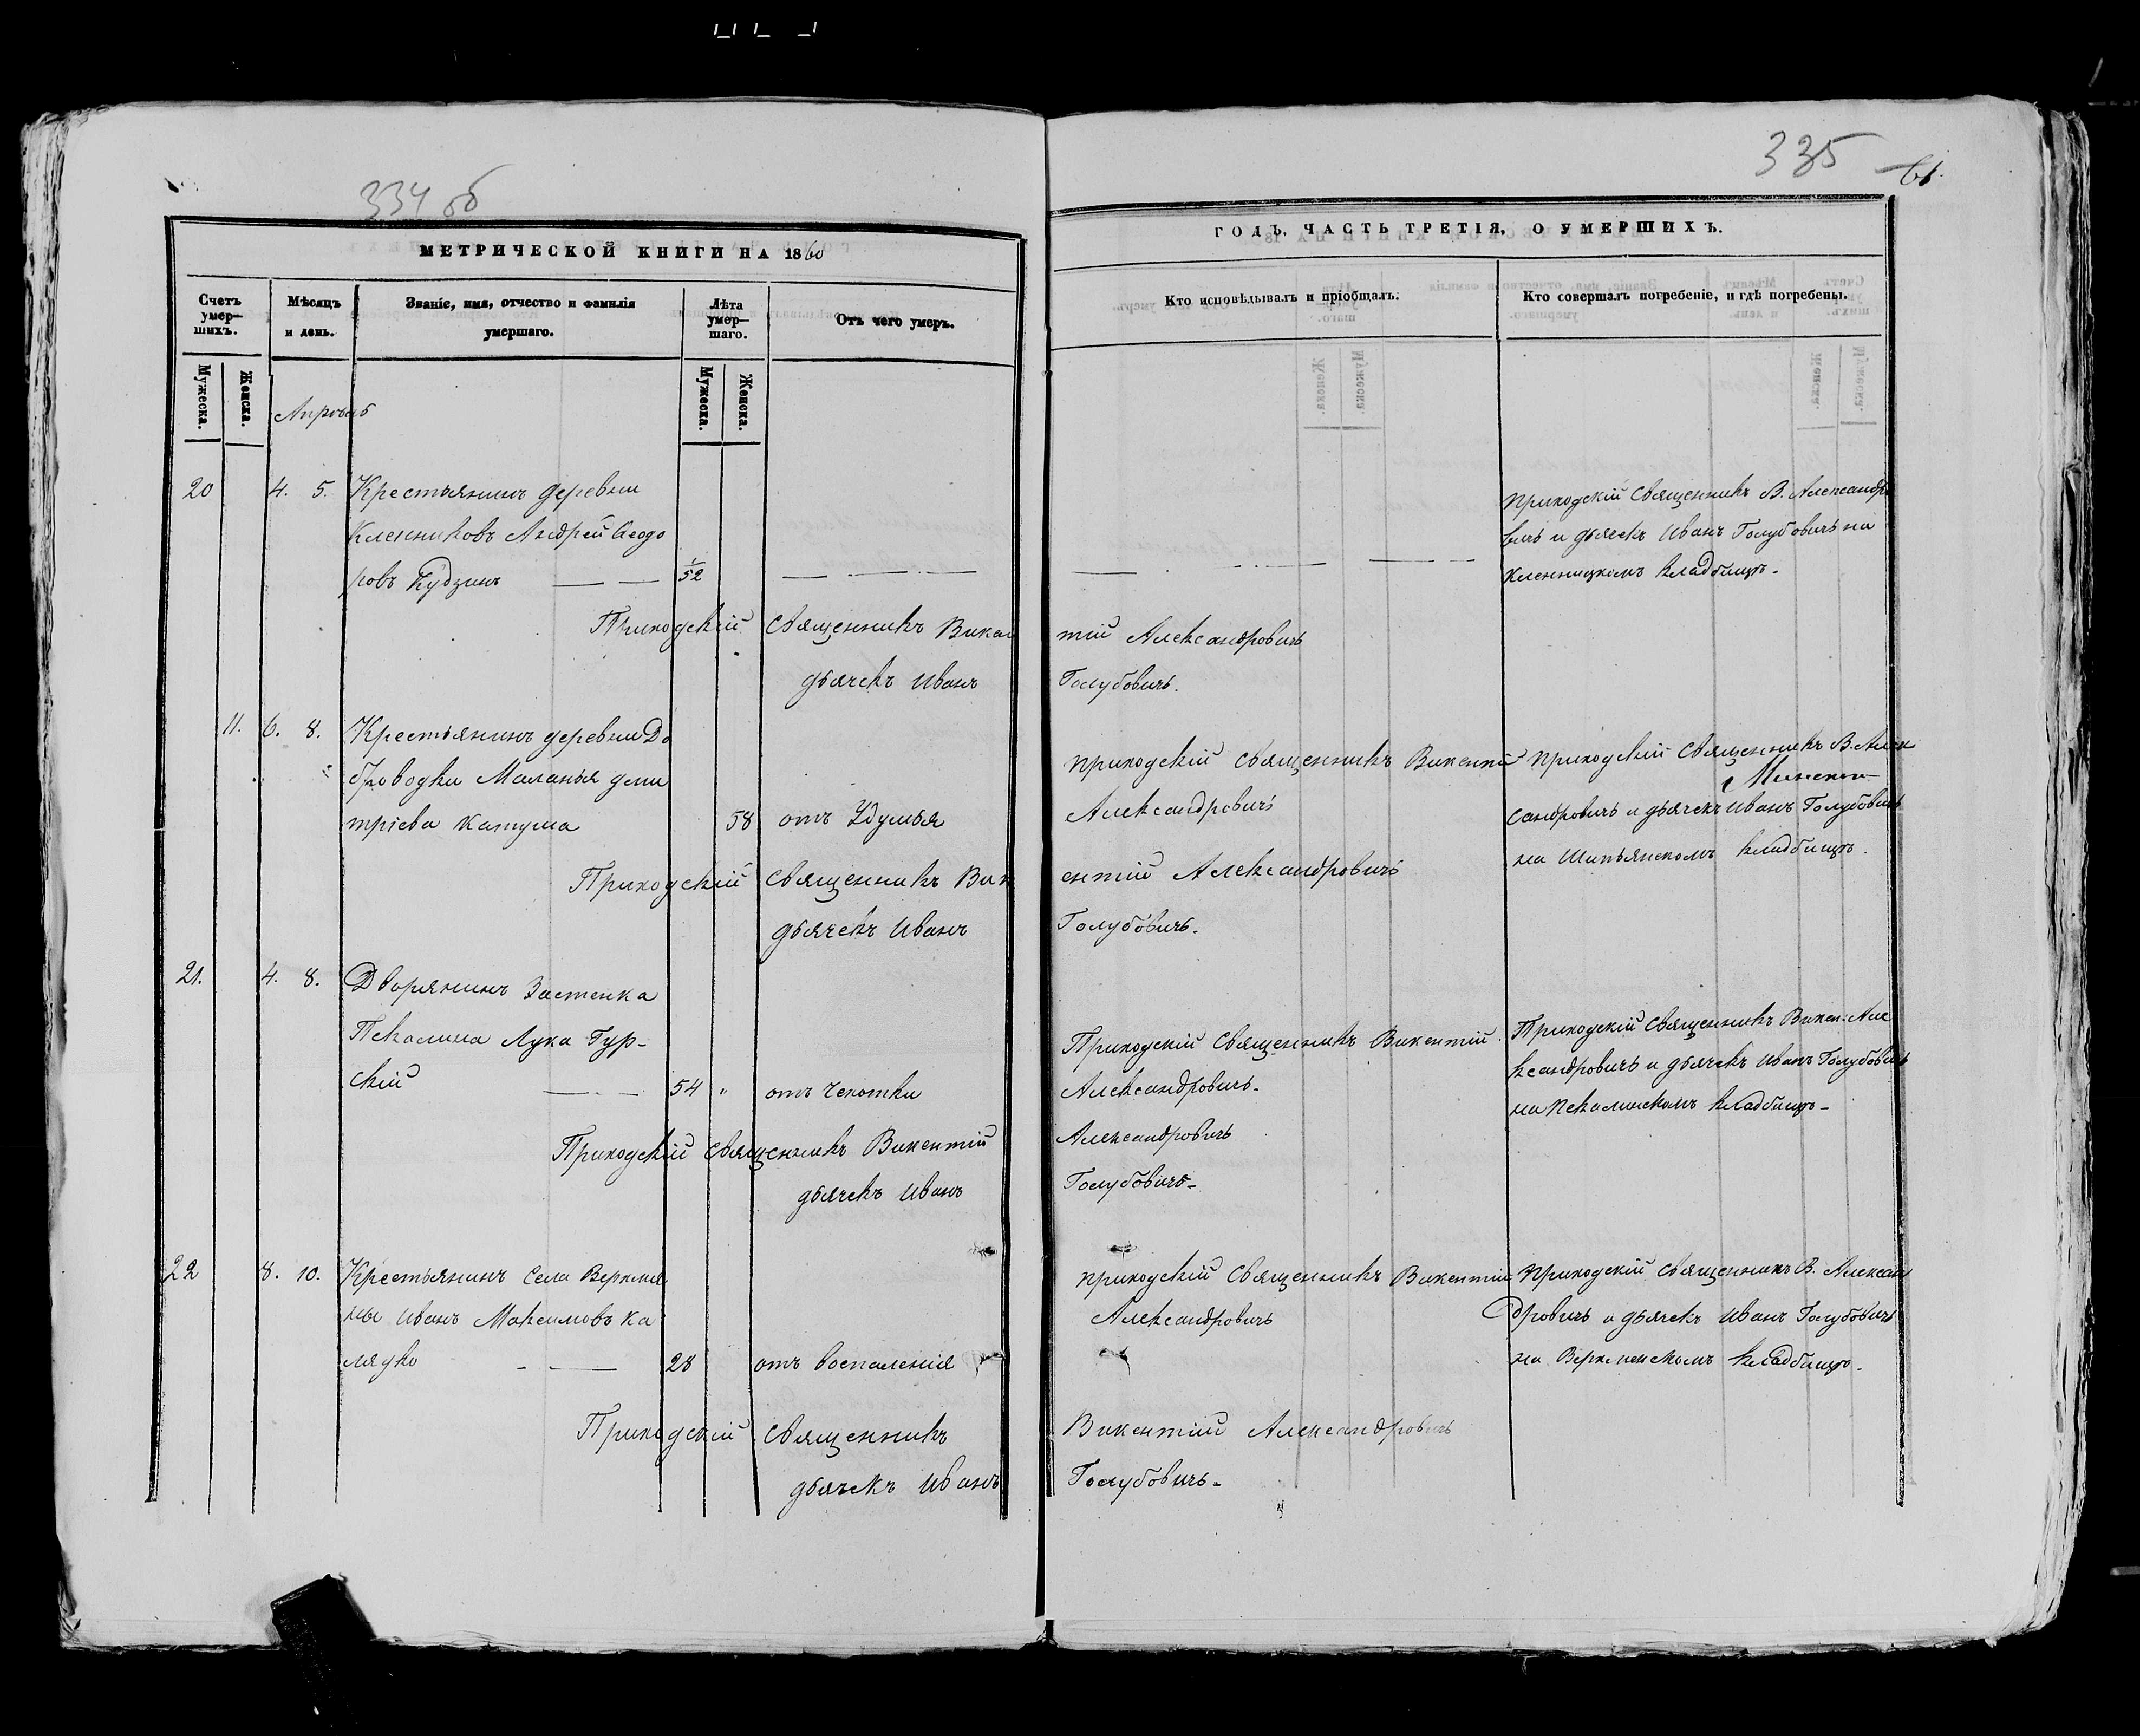 334 об
335
61.
МЕТРИЧЕСКОЙ КНИГИ НА 1860
ГОДЪ, ЧАСТЬ ТРЕТІЯ, О УМЕРШИХЪ.
Счетъ умер-шихъ.
Мѣсяцъ и день.
Званіе, имя, отчество и фамилія умершаго.
Лѣта умер-шаго.
Отъ чего умеръ.
Кто исповѣдывалъ и пріобщалъ.
Кто совершалъ погребеніе, и гдѣ погребены.
Мужеска. Женска.
Мужеска. Женска.
Апрѣль
20 4. 5. Крестьянинъ деревни
Кленниковъ Андрей Ѳеодо
ровъ Кудзинъ 1/52
Приходскій Священникъ В. Александро
вичь и дьячекъ Иванъ Голубовичь на
Кленницкомъ кладбищѣ.
Приходскій Священникъ Викен тій Александровичь
дьячекъ Иванъ Голубовичь.
11. 6. 8. Крестьянинъ деревни До
броводки Маланья Дми
тріева Катума 58 отъ Удушья
приходскій Священникъ Викентій
Александровичь
приходскій Священникъ В. Алек
сандровичь и дьячекъ Иванъ Голубовичь
на Шипьянскомъ кладбищѣ.
Приходскій Священникъ Вик ентій Александровичь
дьячекъ Иванъ Голубовичь.
21. 4. 8. Дворянинъ Застенка
Пекалина Лука Гур-
скій 54 " отъ Чехотки
Приходскій Священникъ Викентій
Александровичь.
Приходскій Священникъ Викен: Але
ксандровичь и дьячекъ Иванъ Голубовичь
на Пекалинскомъ кладбищѣ.
Приходскій Священникъ Викентій Александровичь
дьячекъ Иванъ Голубовичь.
22 8. 10. Крестьянинъ Села Верхмя
ны Иванъ Максимовъ Ка
лядко 28 отъ воспаленія
приходскій Священникъ Викентій
Александровичь
Приходскій Священникъ В. Алексан
дровичь и дьячекъ Иванъ Голубовичь
на Верхменскомъ кладбищѣ.
Приходскій Священникъ Викентій Александровичь
дьячекъ Иванъ Голубовичь.